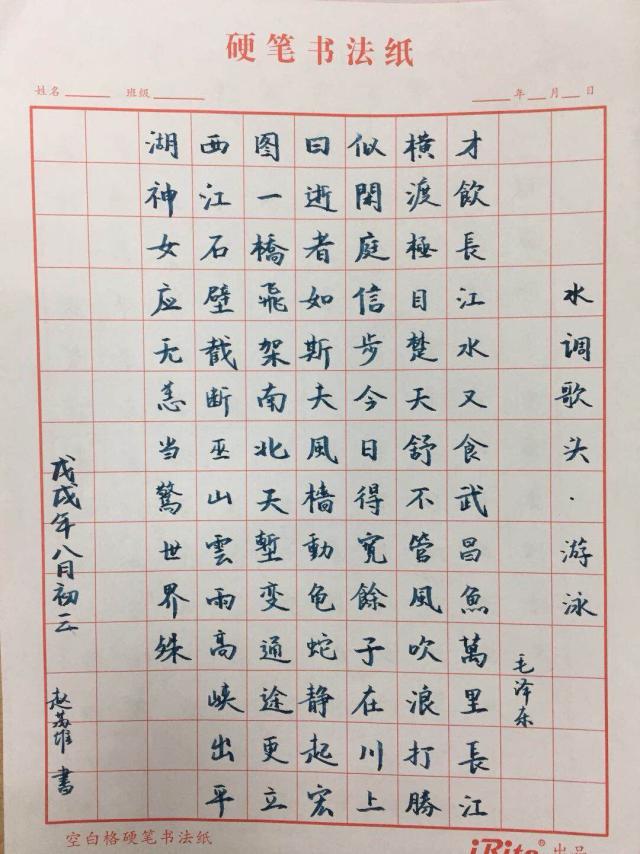 硬笔书法纸
姓名 班级 年 月 日
水调歌头·游泳
毛泽东
才飲長江水又食武昌魚萬里長江
横渡極目楚天舒不管風吹浪打勝
似閑庭信步今日得寬餘子在川上
曰逝者如斯夫風檣動龟蛇静起宏
图一橋飛架南北天塹变通途更立
西江石壁截断巫山雲雨高峡出平
湖神女应无恙当驚世界殊
戊戌年八月初三 赵苏雄書
空白格硬笔书法纸
出品